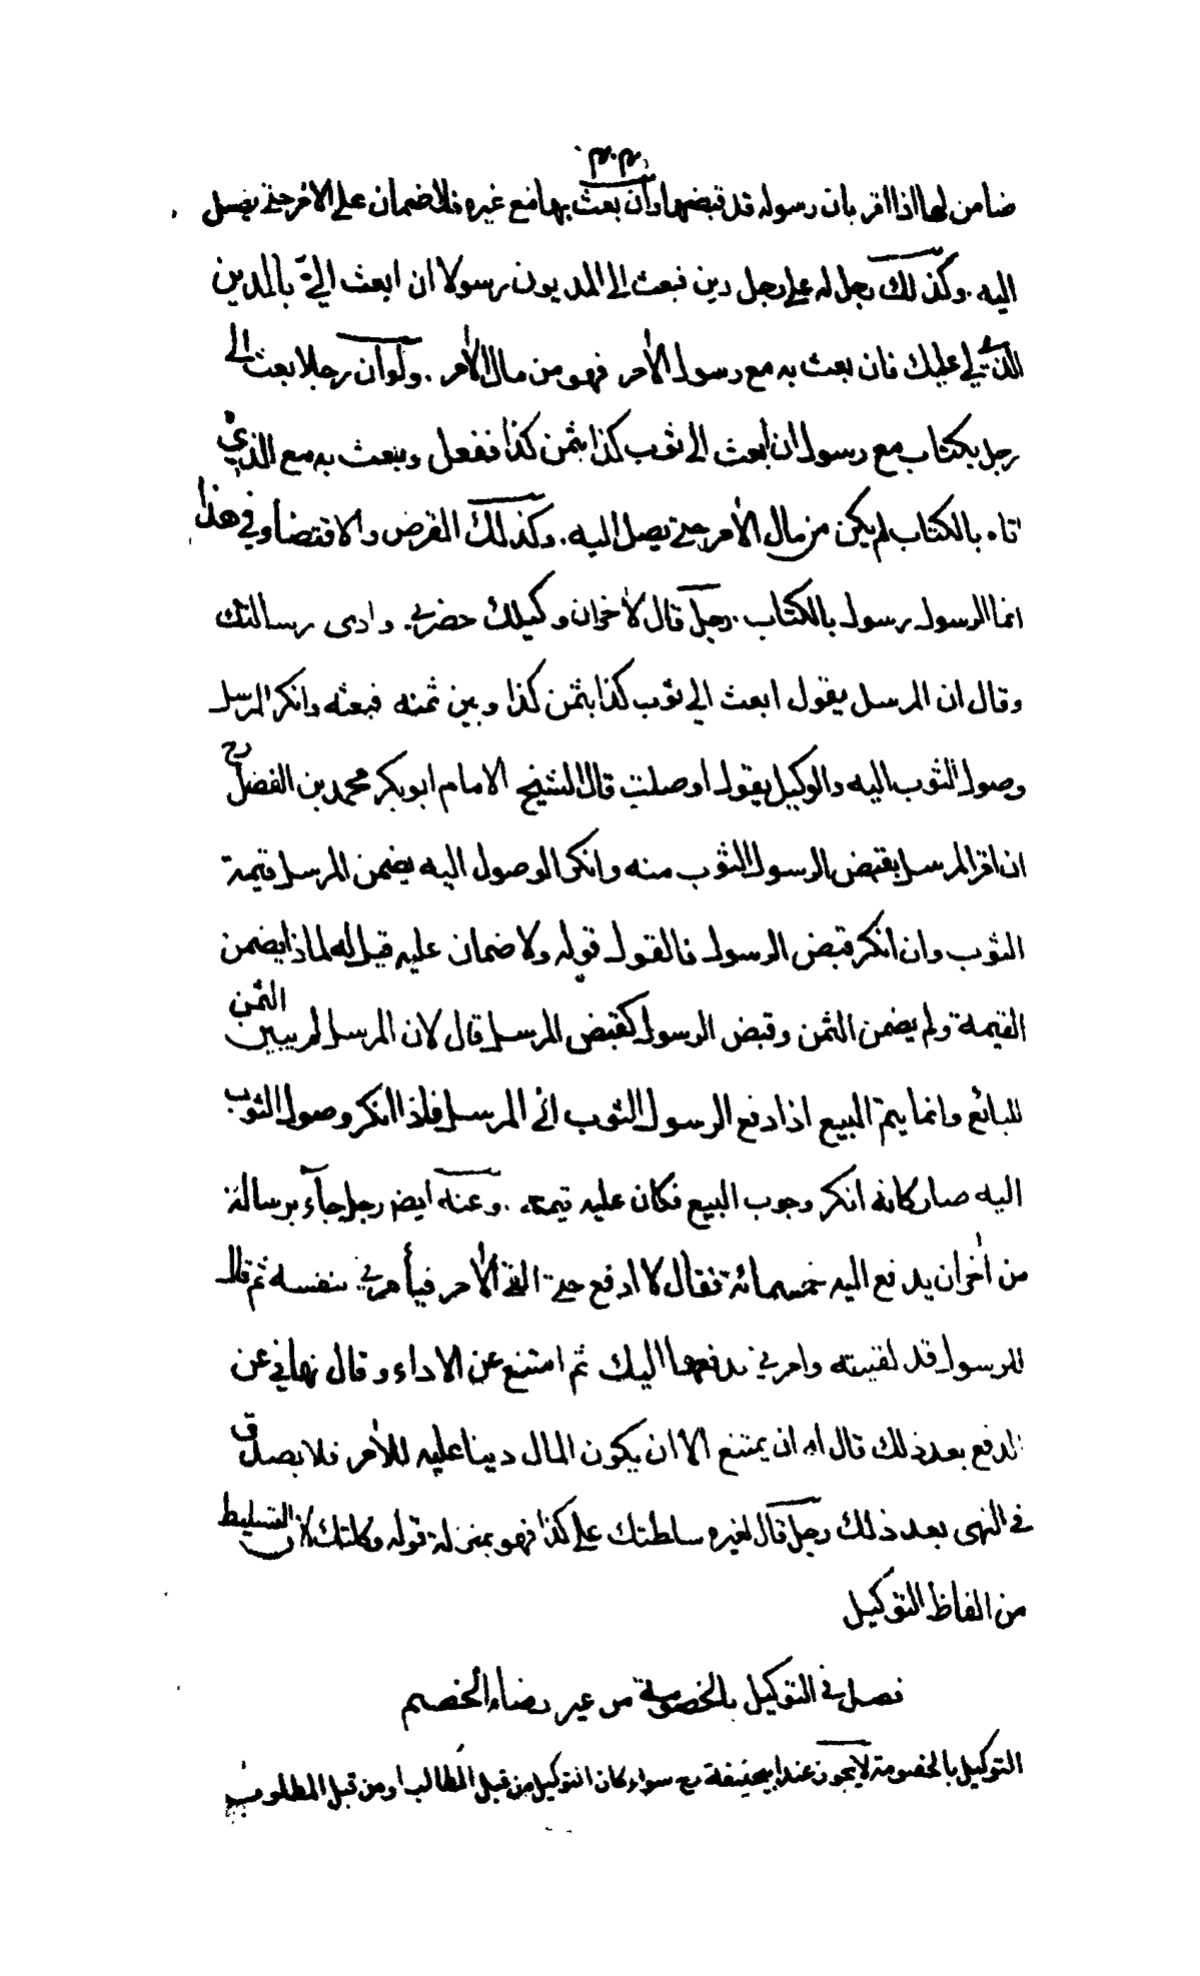 ٣٠٣
ضامن لها اذا اقر بان رسوله قد قبضها وان بعث بها مع غيره فلا ضمان على الآمر حتى يصل
اليه . وكذلك رجل له على رجل دين فبعث الى المديون رسولا ان ابعث اليّ بالدين
الذي لي عليك فان بعث به مع رسول الآمر فهو من مال الآمر . ولو ان رجلا بعث الى
رجل بكتاب مع رسول ان ابعث الي ثوب كذا بثمن كذا ففعل وبعث به مع الذي
اتاه بالكتاب لم يكن من مال الآمر حتى يصل اليه . وكذلك القرض والاقتضاء وفي هذا
انما الرسول رسول بالكتاب . رجل قال لآخر ان وكيلك حضرني وادى رسالتك
وقال ان المرسل يقول ابعث الي ثوب كذا بثمن كذا وبين ثمنه فبعثه وانكر المرسل
وصول الثوب اليه والوكيل يقول اوصلت قال الشيخ الامام ابو بكر محمد بن الفضل رح
ان اقر المرسل بقبض الرسول الثوب منه وانكر الوصول اليه يضمن المرسل قيمة
الثوب وان انكر قبض الرسول فالقول قوله ولا ضمان عليه قيل له لماذا يضمن
القيمة ولم يضمن الثمن وقبض الرسول كقبض المرسل قال لان المرسل لم يبين الثمن
للبائع وانما يتم البيع اذا دفع الرسول الثوب الى المرسل فاذا انكر وصول الثوب
اليه صار كانه انكر وجوب البيع فكان عليه قيمته . وعنه ايض رجل جاء برسالة
من آخر ان يدفع اليه خمسمائة فقال لا ادفع حتى القى الآمر فيأمرني بنفسه ثم قال
للرسول قد لقيته وامرني بدفعها اليك ثم امتنع عن الاداء وقال نهاني عن
الدفع بعد ذلك قال له ان يمتنع الا ان يكون المال دينا عليه للآمر فلا يصدق
في النهي بعد ذلك رجل قال لغيره سلطتك على كذا فهو بمنزلة قوله وكلتك لان التسليط
من الفاظ التوكيل
فصل في التوكيل بالخصومة من غير رضاء الخصم
التوكيل بالخصومة لا يجوز عند ابيحنيفة رح سواء كان التوكيل من قبل الطالب او من قبل المطلوب